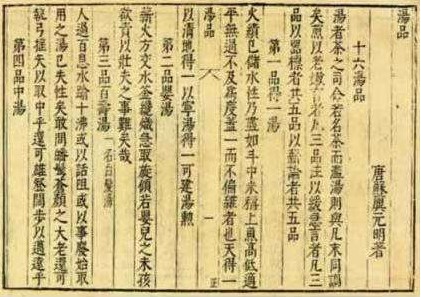 湯品
十六湯品
唐蘇廙元明著
湯者茶之司命若名茶而濫湯則與凡末同調
矣煎以老嫩言者凡三品注以緩急言者凡三
品以器標者共五品以薪論者共五品
第一品得一湯
火績已儲水性乃盡如斗中米稱上魚高低適
平無過不及為度蓋一而不偏雜者也天得一
湯品
一
正
以清地得一以寧湯得一可建湯勳
第二品嬰湯
薪火方交水釜纔熾急取旋傾若嬰兒之未孩
欲責以壯夫之事難矣哉
第三品百壽湯 一名白髮湯
人過百息水踰十沸或以話阻或以事廢始取
用之湯已失性矣敢問皤鬢蒼顏之大老還可
執弓搖矢以取中乎還可雄登闊步以邁遠乎
第四品中湯